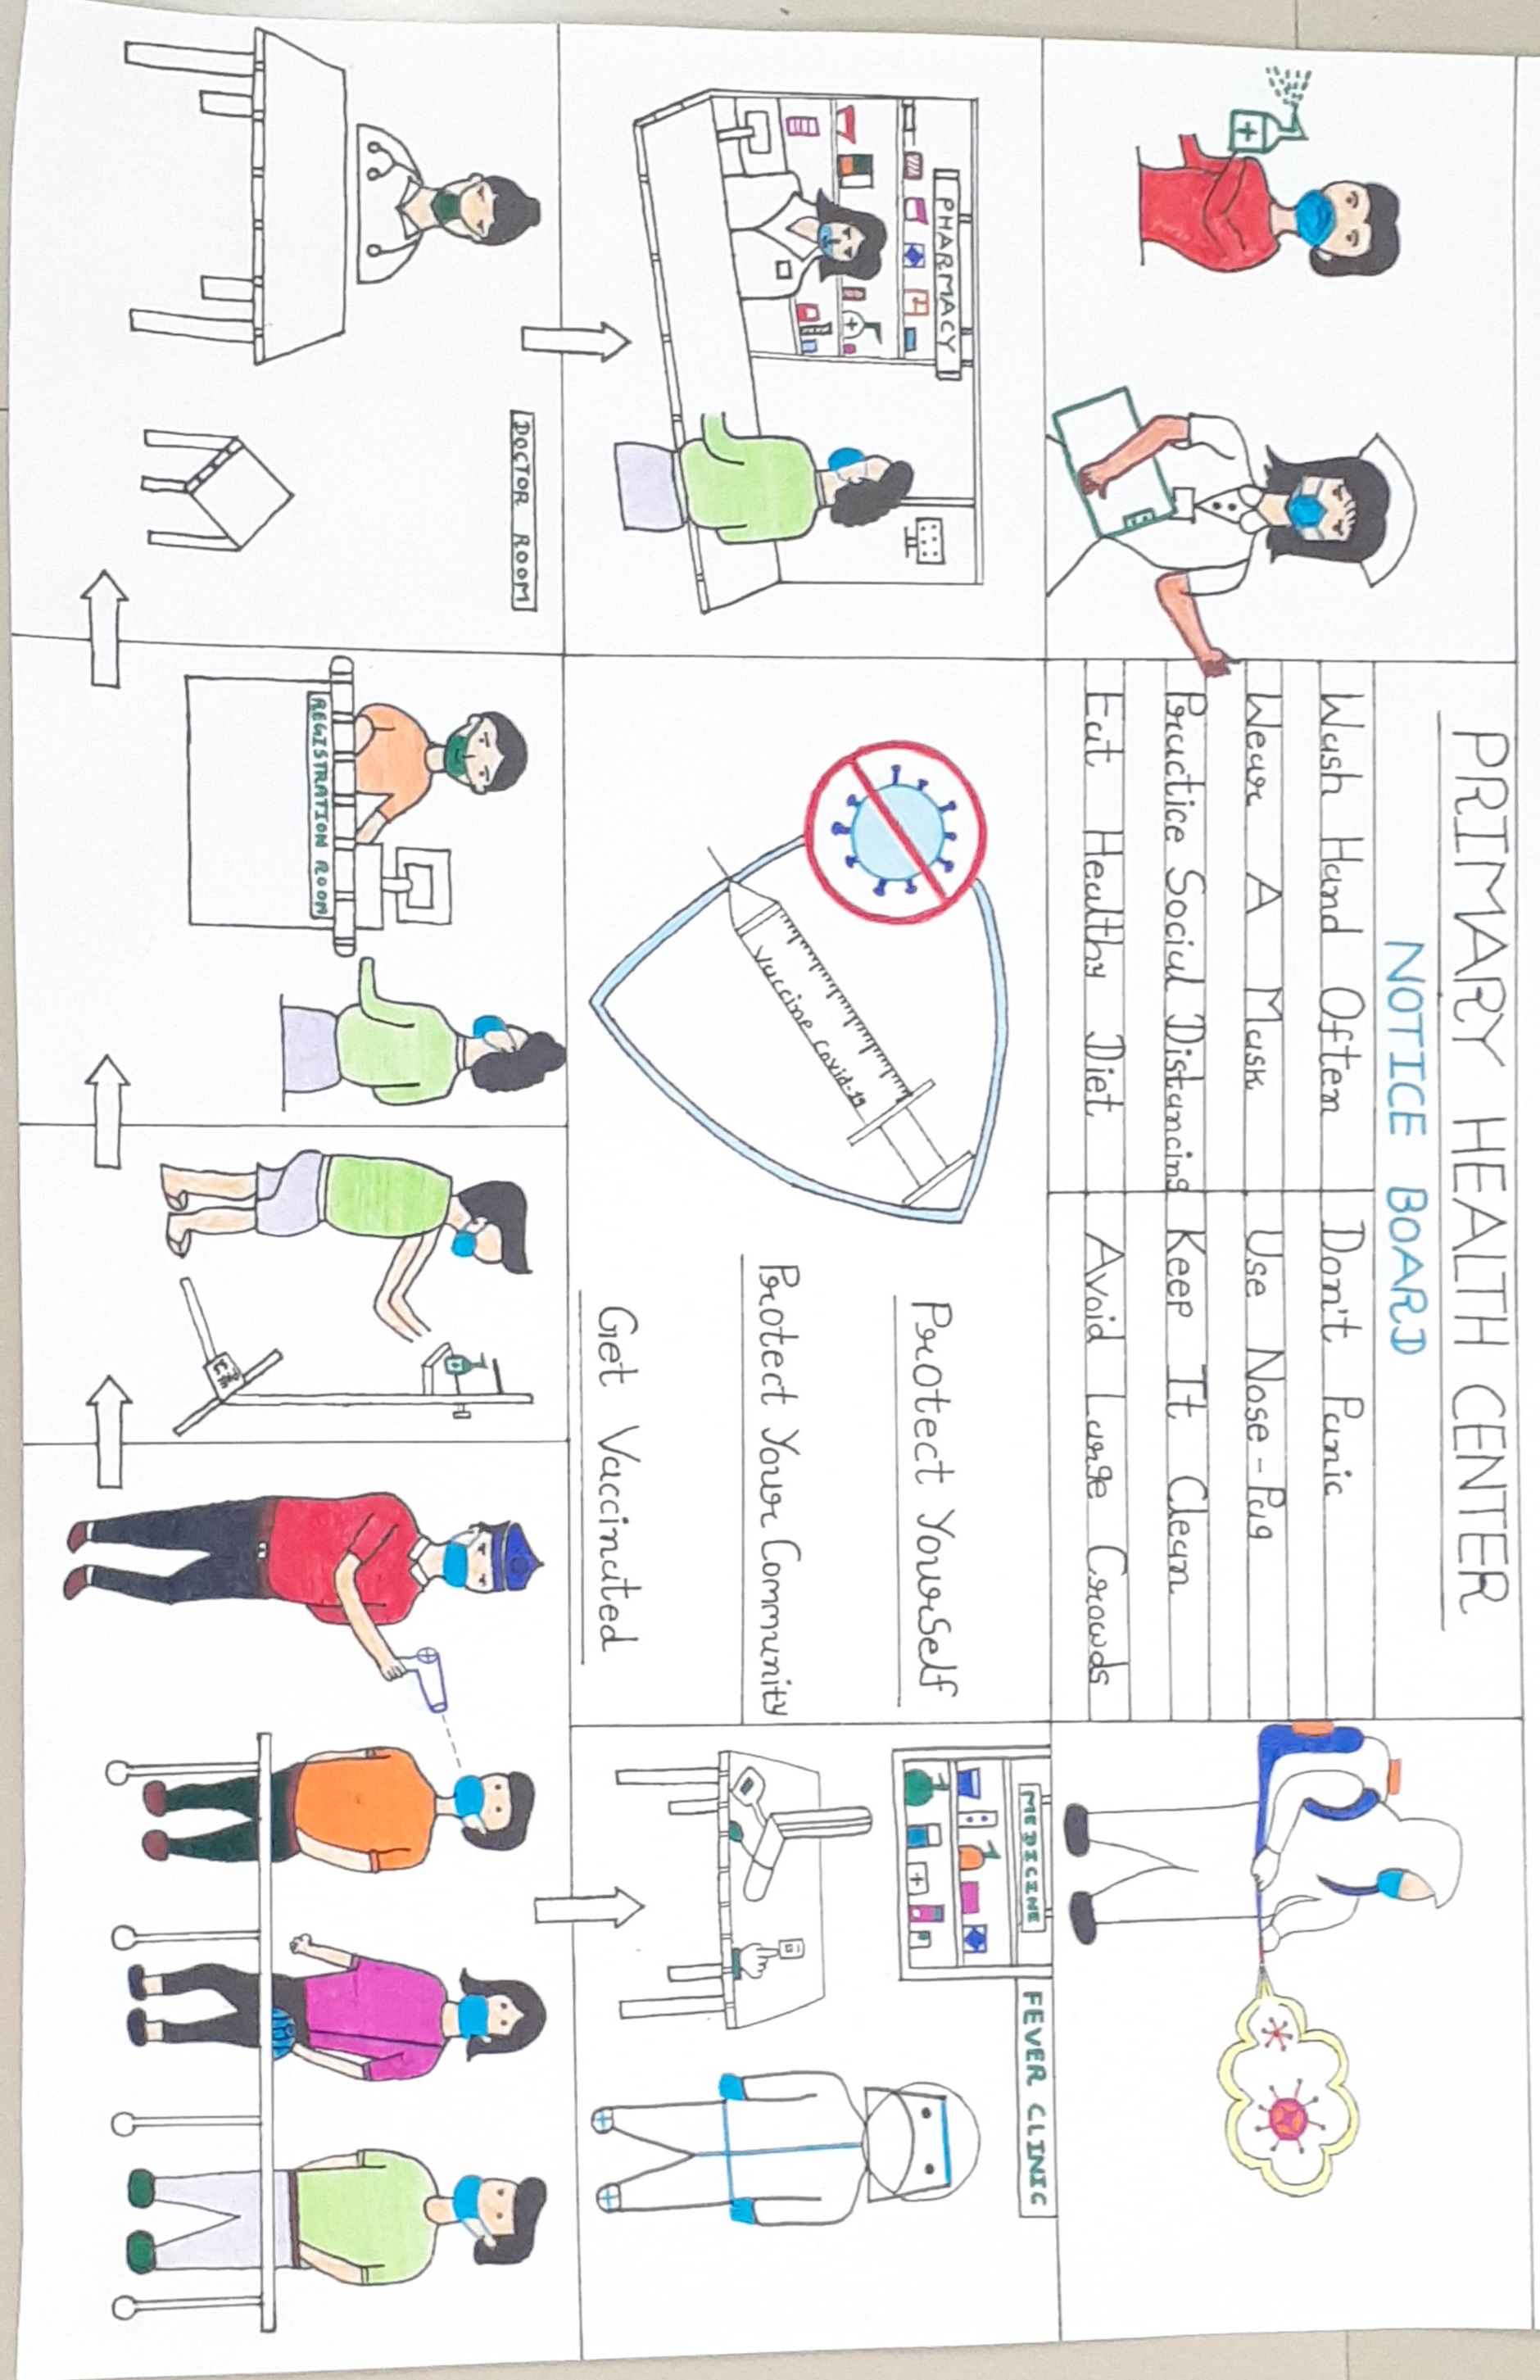 PRIMARY HEALTH CENTER
NOTICE BOARD
Wash Hand Often
Don't Panic
Wear A Mask
Use Nose-Pag
Practice Social Distancing
Keep It Clean
Eat Healthy Diet
Avoid Large Crowds
PHARMACY
Vaccine Covid-19
Protect YourSelf
Protect Your Community
Get Vaccinated
MEDICINE
FEVER CLINIC
DOCTOR ROOM
REGISTRATION ROOM